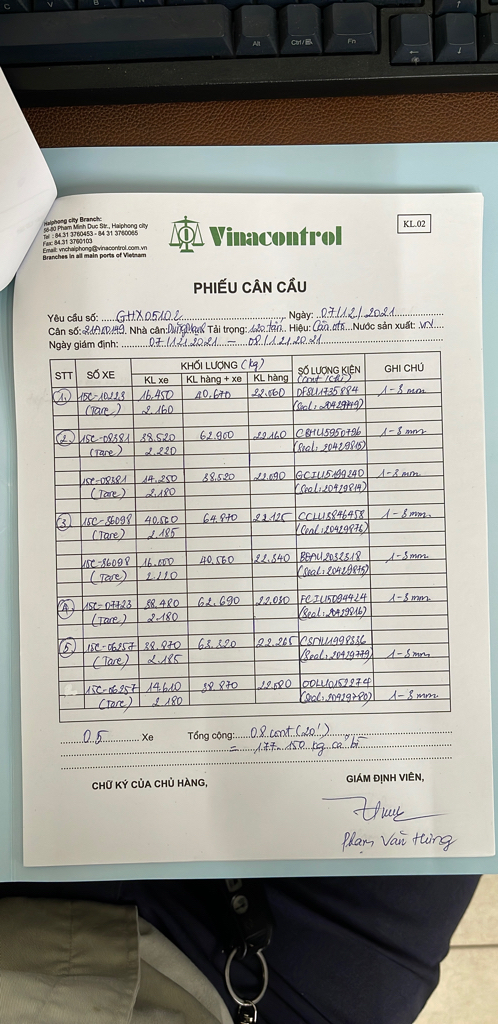 Alt
Ctrl
Fn
Haiphong city Branch:
56-80 Pham Minh Duc Str., Haiphong city
Tel : 84.31 3760453 - 84 31 3760065
Fax: 84.31 3760103
Email: vnchaiphong@vinacontrol.com.vn
Branches in all main ports of Vietnam
Vinacontrol
KL.02
PHIẾU CÂN CẦU
Yêu cầu số: GHX05102 Ngày: 07/12/2021
Cân số: Nhà cân: Tải trọng: 120 tấn Hiệu: Cân ôtô Nước sản xuất: VN
Ngày giám định: 07/12/2021 - 08/12/2021
STT SỐ XE KHỐI LƯỢNG (kg) SỐ LƯỢNG KIỆN GHI CHÚ
KL xe KL hàng + xe KL hàng
1 15C-10223 16.450 40.670 1-3 mm
(Tare) 2.160
2 15C-08381 38.520 62.900 22.160 1-3 mm
(Tare) 2.220 (Seal: 20429815)
15C-08381 14.250 38.520 22.090 1-3 mm
(Tare) 2.180 (Seal: 20429814)
3 15C-36098 40.560 64.870 22.125 CCLU3846458 1-3 mm
(Tare) 2.185 (Seal: 20429876)
15C-36098 16.000 40.560 22.340 1-3 mm
(Tare) (Seal: 20429875)
4 15C-07723 38.480 62.690 22.030 1-3 mm
(Tare) 2.180 (Seal: 20429816)
5 15C-06257 38.870 63.320 22.265
(Tare) 2.185 (Seal: 20429779) 1-3 mm
15C-06257 14.610 38.870 22.080 OOLU0152274
(Tare) 2.180 (Seal: 20429780) 1-3 mm
05 Xe Tổng cộng: 08 cont (20')
= 177.150 kg cả bì
CHỮ KÝ CỦA CHỦ HÀNG, GIÁM ĐỊNH VIÊN,
Phạm Văn Hùng